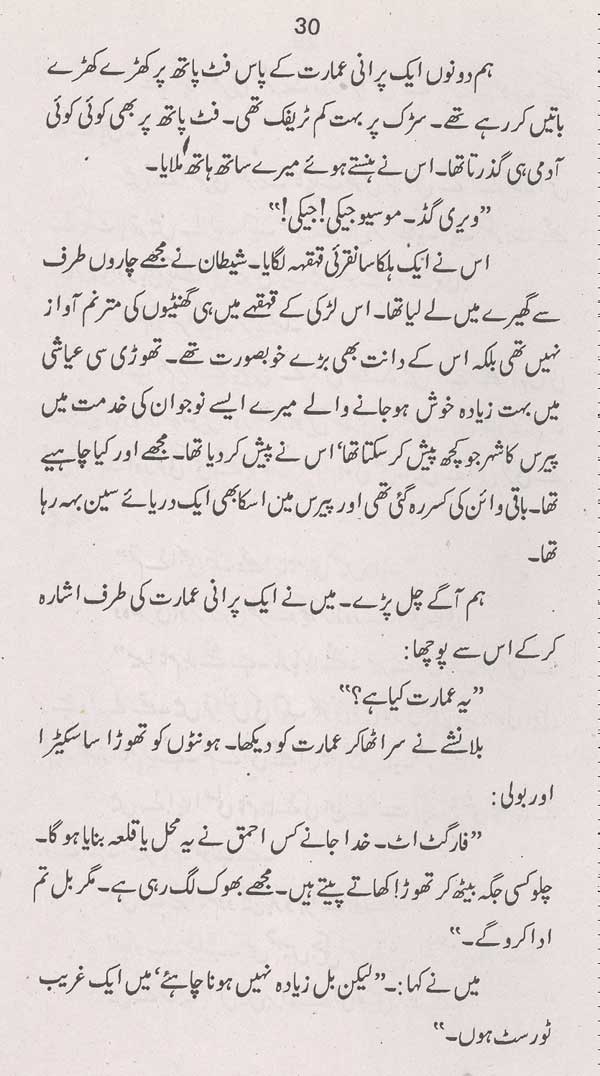 30
ہم دونوں ایک پرانی عمارت کے پاس فٹ پاتھ پر کھڑے کھڑے
باتیں کر رہے تھے۔ سڑک پر بہت کم ٹریفک تھی۔ فٹ پاتھ پر بھی کوئی کوئی
آدمی ہی گذرتا تھا۔ اس نے ہنستے ہوئے میرے ساتھ ہاتھ ملایا۔
”ویری گڈ۔ موسیو جیکی! جیکی!“
اس نے ایک ہلکا سا نقرئی قہقہہ لگایا۔ شیطان نے مجھے چاروں طرف
سے گھیرے میں لے لیا تھا۔ اس لڑکی کے قہقہے میں ہی گھنٹیوں کی مترنم آواز
نہیں تھی بلکہ اس کے دانت بھی بڑے خوبصورت تھے۔ تھوڑی سی عیاشی
میں بہت زیادہ خوش ہو جانے والے میرے ایسے نوجوان کی خدمت میں
پیرس کا شہر جو کچھ پیش کر سکتا تھا‘ اس نے پیش کر دیا تھا۔ مجھے اور کیا چاہیے
تھا۔ باقی وائن کی کسر رہ گئی تھی اور پیرس میں اسکا بھی ایک دریائے سین بہہ رہا
تھا۔
ہم آگے چل پڑے۔ میں نے ایک پرانی عمارت کی طرف اشارہ
کر کے اس سے پوچھا:
”یہ عمارت کیا ہے؟“
بلانشے نے سر اٹھا کر عمارت کو دیکھا۔ ہونٹوں کو تھوڑا سا سکیڑا
اور بولی:
”فارگٹ اٹ۔ خدا جانے کس احمق نے یہ محل یا قلعہ بنایا ہو گا۔
چلو کسی جگہ بیٹھ کر تھوڑا کھاتے پیتے ہیں۔ مجھے بھوک لگ رہی ہے۔ مگر بل تم
ادا کرو گے۔“
میں نے کہا:۔ ”لیکن بل زیادہ نہیں ہونا چاہئے‘ میں ایک غریب
ٹورسٹ ہوں۔“